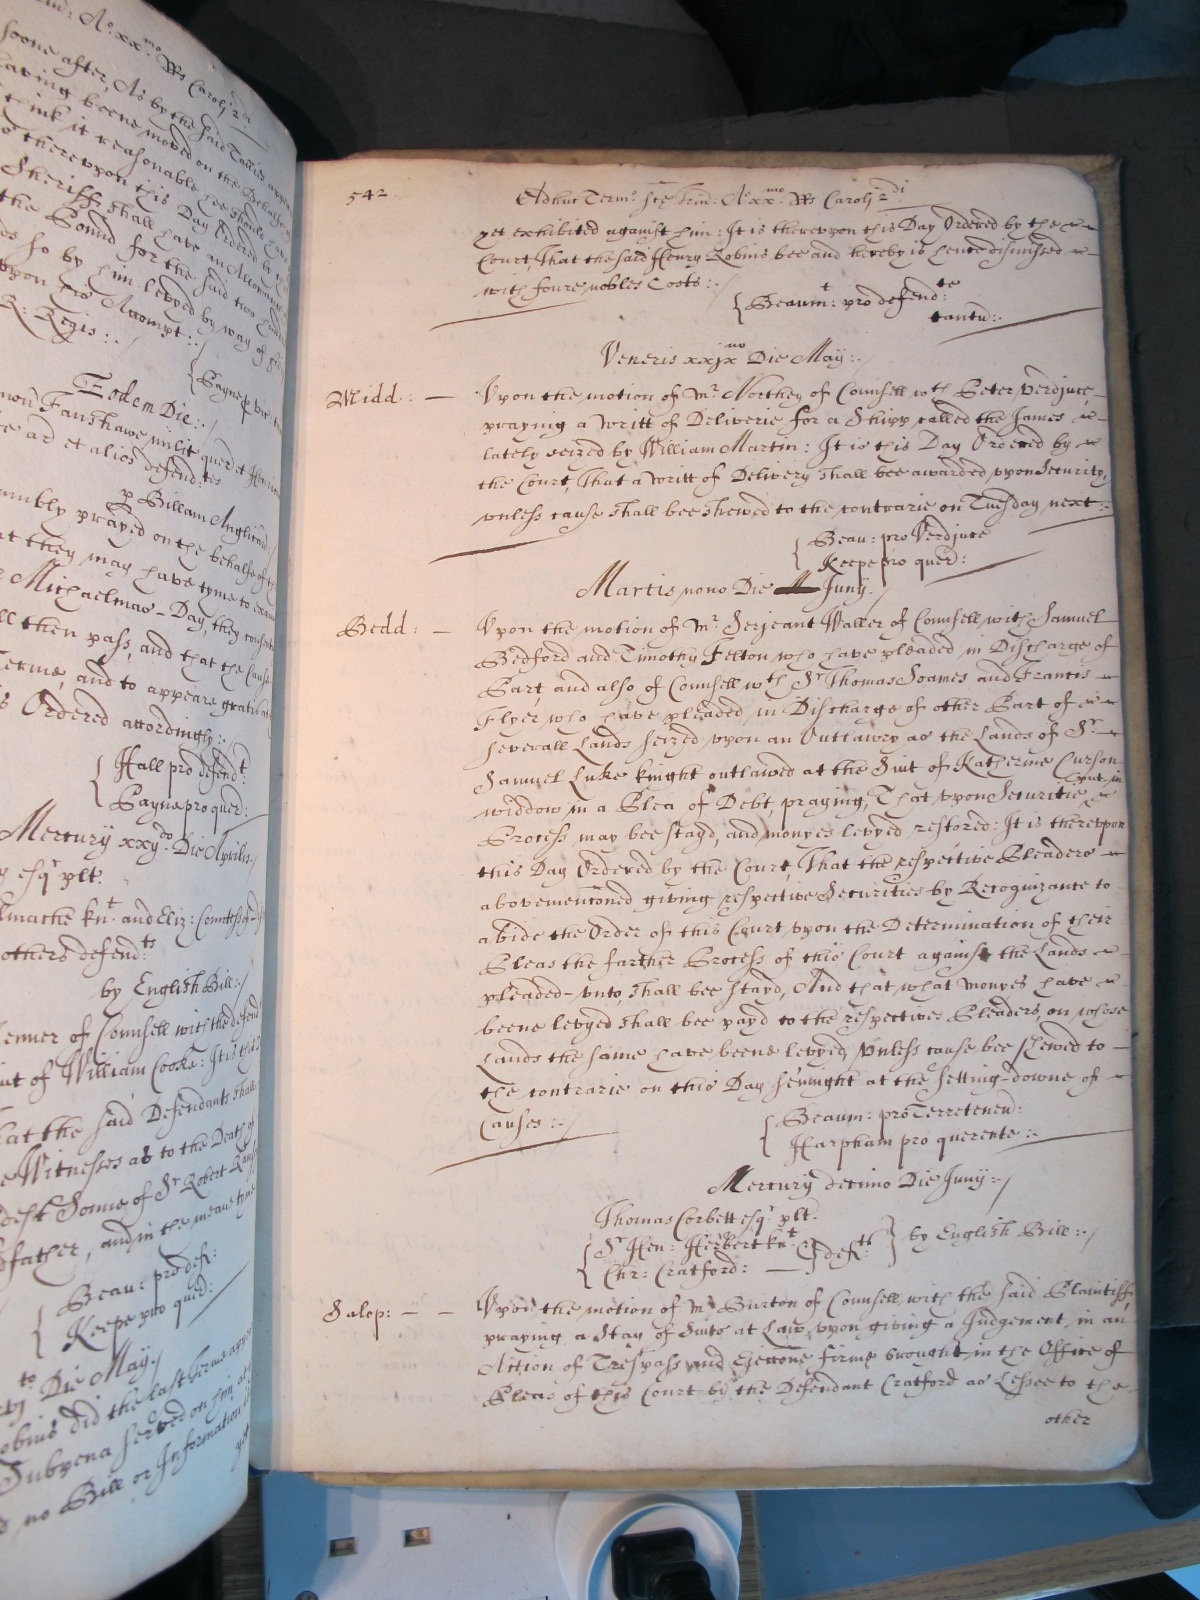 rmi: Ao: xx.mo Rs Caroli 2di
soone after, As by the said Tallies
having beene moved on the Behalfe
think it reasonable hee should have
thereupon this Day Ordered by the
Sheriff shall have an Allowance
the Bound for the said two
so by him levyed by way of
upon his Accompt :
R: Regis :
Eodem Die :
Fanshawe milit quer et Henric
ar et alios defend:tes
p Billam Anglican:
umbly prayed on the behalfe of
at they may have tyme to exam
Michaelmas-Day, they consent
ll then pass, and that the Cause
Terme, and to appeare gratis at
s Ordered accordingly :
Hall pro defend:t
Payne pro quer:
Mercury xxijdo: Die Aprilis
esqr plt.
knt: and Eliz: Comtess of
others defend:ts
by English Bill :
enner of Counsell with the defend
ut of William Cooke: It is this
hat the said Defendants shall
Witnesses as to the Death of
dest Sonne of Sr Robert
father, and in the meane tyme
Beau: pro def:
Keepe pro quer:
to Die May.
obins did the last Terme
Subpena served on him at
no Bill or Information
yet
542
Adhuc Termo: Sce Trin: Ao: xx.mo Rs Caroli 2di
yet exhibited against him: It is thereupon this Day Ordered by the
Court, That the said Henry Robins bee and hereby is hence dismissed
with foure nobles Costs :
Beaumt: pro defend:te
tantu:
Veneris xxixno Die May :
Midd : — Upon the motion of Mr. Northey of Counsell wth Peter Verdjuce
praying a Writt of Deliverie for a Shipp called the James
lately seized by William Martin: It is this Day Ordered by
the Court, That a Writt of Delivery shall bee awarded upon Security,
unless cause shall bee shewed to the contrarie on Tuesday next :
Beau: pro Verdjuce
Keepe pro quer:
Martis nono Die Juny.
Bedd : — Upon the motion of Mr. Serjeant Waller of Counsell with Samuel
Bedford and Timothy Felton who have pleaded in Discharge of
Part, and also of Counsell wth Sr Thomas Soames and Francis
Flyer who have pleaded in Discharge of other Part of
severall Lands seized upon an Outlawry as the Lands of Sr
Samuel Luke knight outlawed at the Suit of Katherine Curson
widdow in a Plea of Debt, praying, That upon Securitie put in
Process may bee stayd, and monyes levyed restored: It is thereupon
this Day Ordered by the Court, That the respective Pleaders
abovementioned giving respective Securities by Recognizance to
abide the Order of this Court upon the Determination of their
Pleas the farther Process of this Court against the Lands
pleaded-unto, shall bee stayd, And that what monyes have
beene levyed shall bee payd to the respective Pleaders, on whose
Lands the same have beene levyed, Unless cause bee shewed to
the contrarie on this Day Sevnight at the setting-downe of
Causes :
Beaum: pro Terretenen:
Harpham pro querente :
Mercury decimo Die Juny :
Thomas Corbett esqr. plt.
Sr Hen: Herbert knt & defts by English Bill :
Chr: Cratford: —
Salop: — — Upon the motion of Mr Burton of Counsell with the said Plaintiffe
praying a Stay of Suits at Law, upon giving a Judgement in an
Action of Trespass and Ejectione firme brought in the Office of
Pleas of this Court by the Defendant Cratford as Lessee to the
other